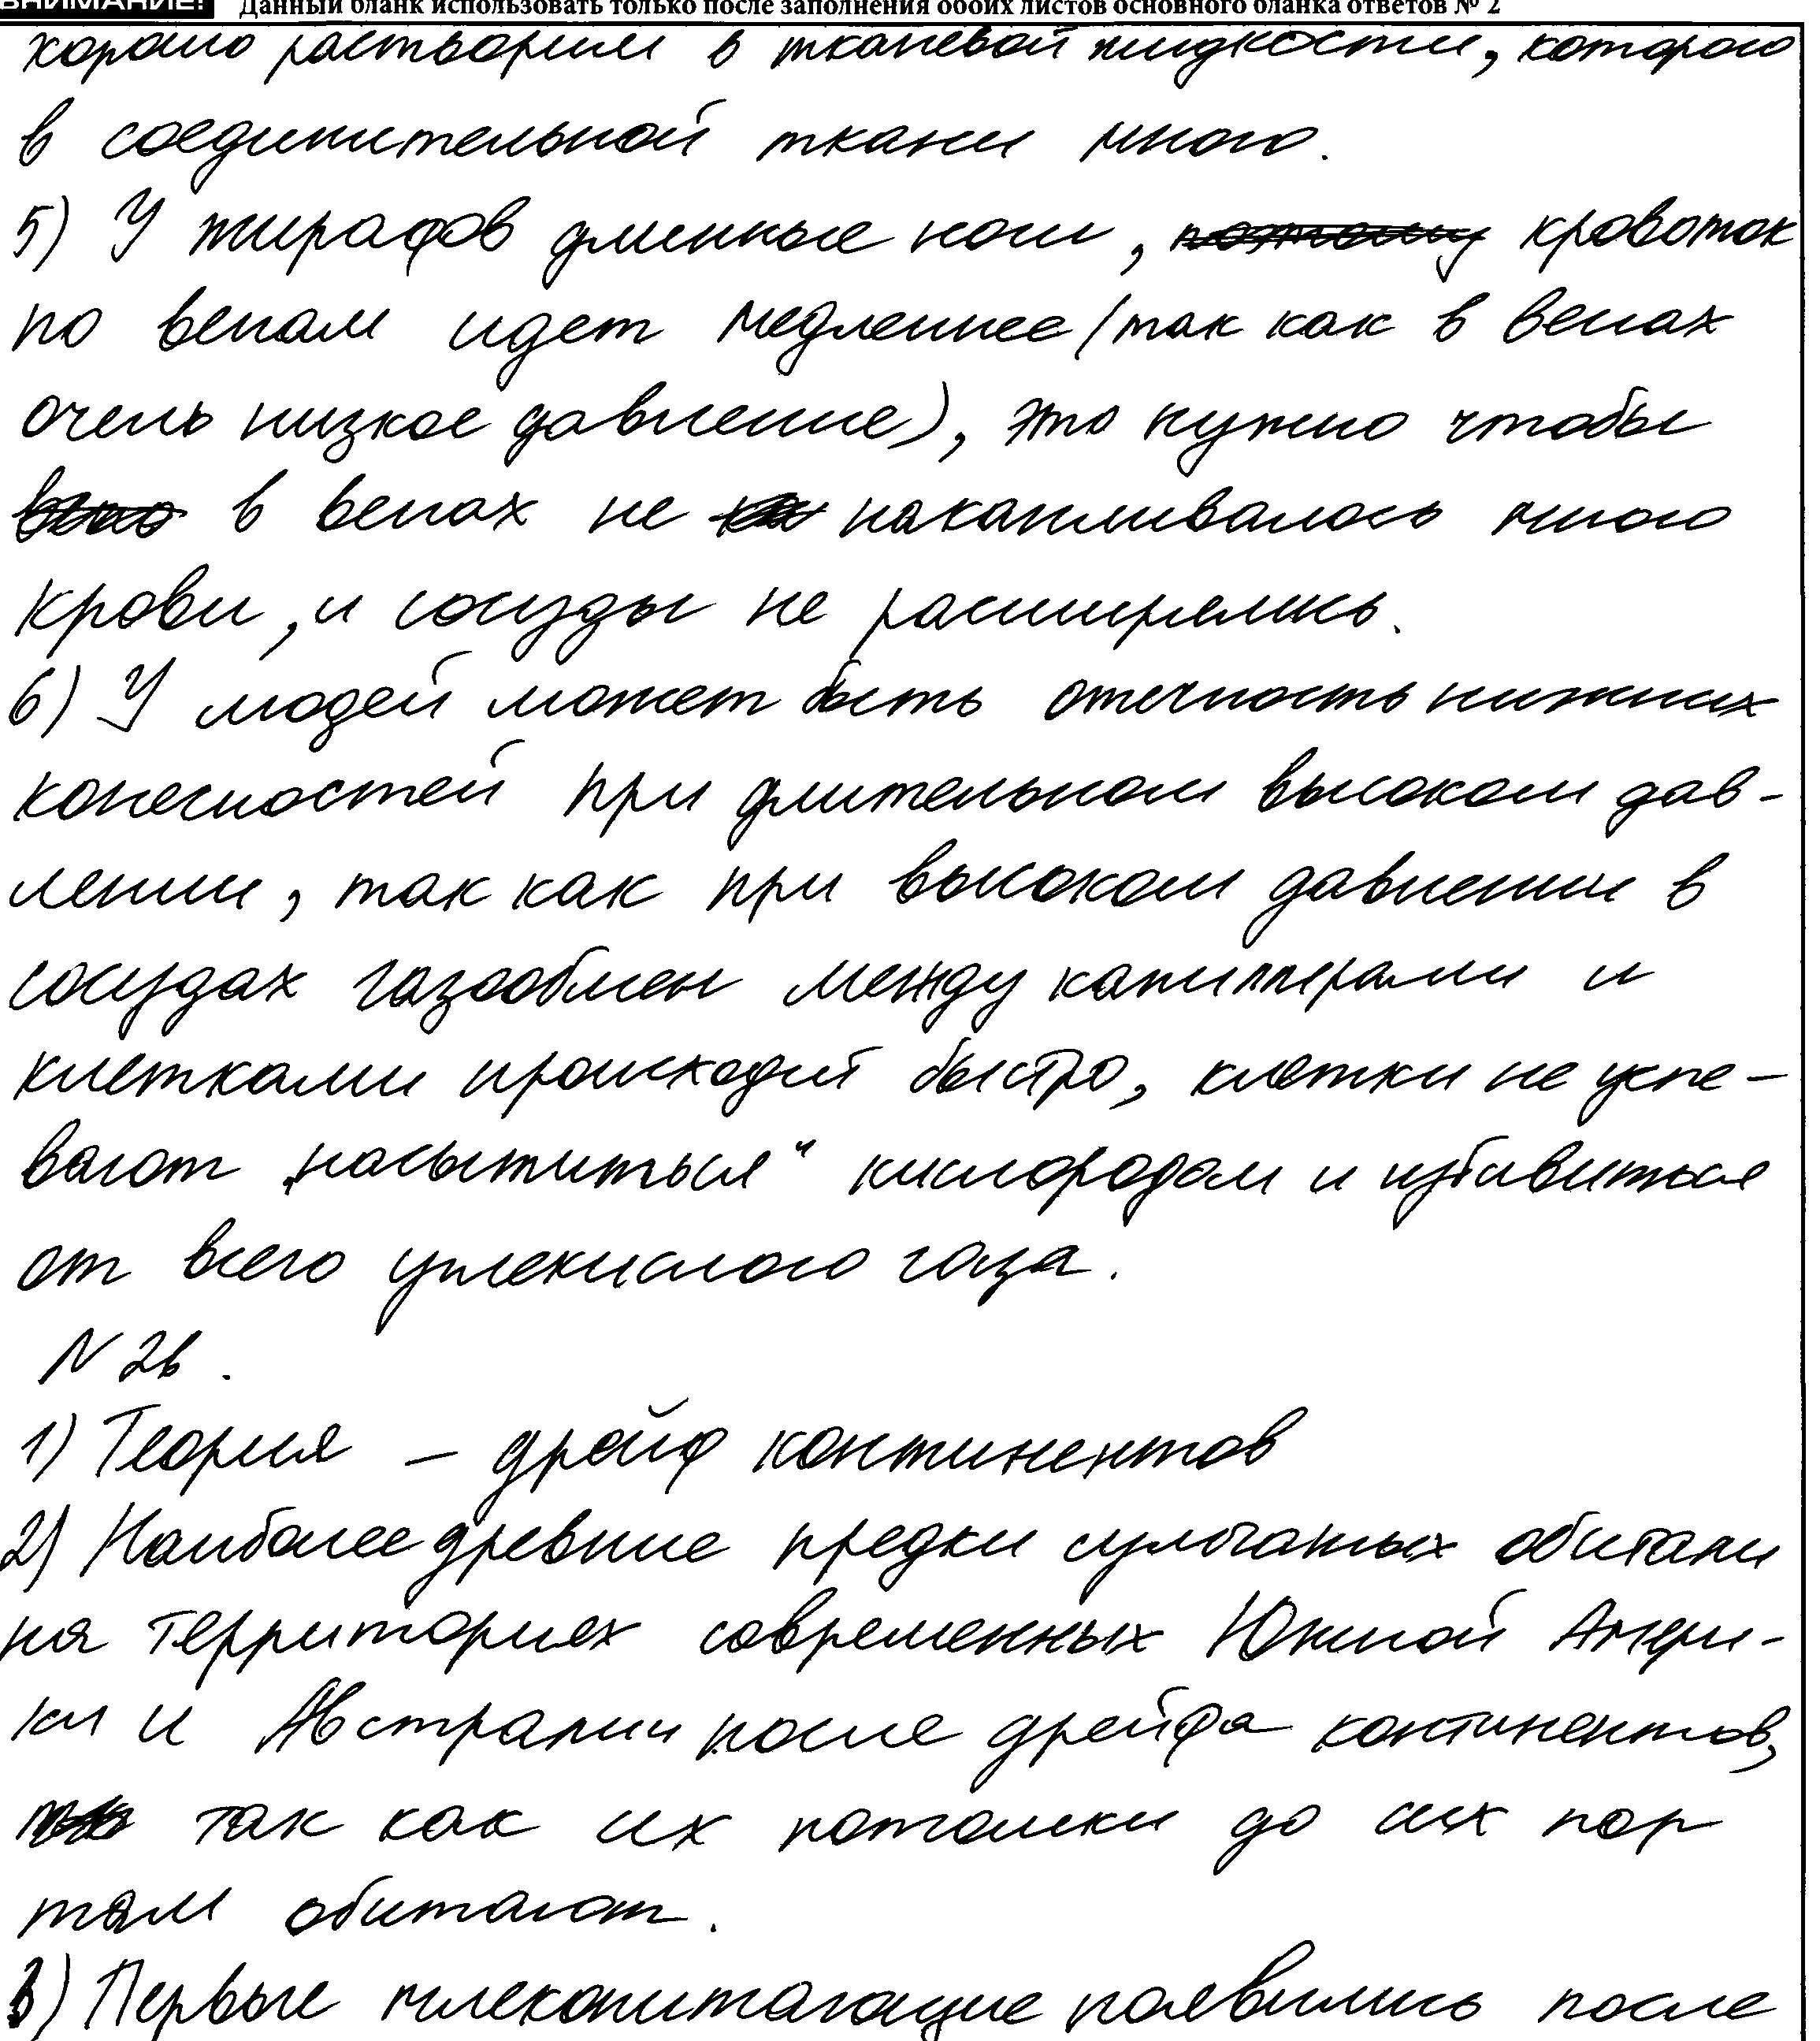 ВНИМАНИЕ! Данный бланк использовать только после заполнения обоих листов основного бланка ответов № 2
хорошо растворим в тканевой жидкости, которого
в соединительной ткани много.
5) У жирафов длинные ноги, поэтому кровоток
по венам идет медленнее (так как в венах
очень низкое давление), это нужно чтобы
в венах не накапливалось много
крови, и сосуды не расширялись.
6) У людей может быть отечность нижних
конесностей при длительном высоком дав-
лении, так как при высоком давлении в
сосудах газообмен между капиллярами и
клетками происходит быстро, клетки не успе-
вают „насытиться“ кислородом и избавиться
от всего углекислого газа.
N 26.
1) Теория – дрейф континентов
2) Наиболее древние предки сумчатых обитали
на территориях современных Южной Амери-
ки и Австралии после дрейфа континентов,
так как их потомки до сих пор
там обитают.
3) Первые млекопитающие появились после